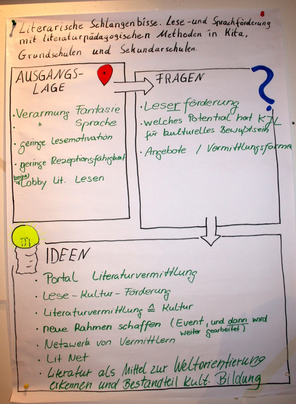 ! Literarische Schlangenbisse. Lese- und Sprachförderung
mit literaturpädagogischen Methoden in Kita,
Grundschulen und Sekundarschulen.
AUSGANGS-
LAGE
· Verarmung Fantasie
" Sprache
· geringe Lesemotivation
· geringe Rezeptionsfähigkeit
· Lobby Lit. Lesen
FRAGEN
?
· Leserförderung
· welches Potential hat KJL
für kulturelles Bewußtsein
· Angebote / Vermittlungsforma
IDEEN
· Portal Literaturvermittlung
· Lese-Kultur-Förderung
· Literaturvermittlung ≙ Kultur
· neue Rahmen schaffen (Event, und dann wird
weiter gearbeitet)
· Netzwerk von Vermittlern
· Lit Net
· Literatur als Mittel zur Weltorientierung
erkennen und Bestandteil kult. Bildung